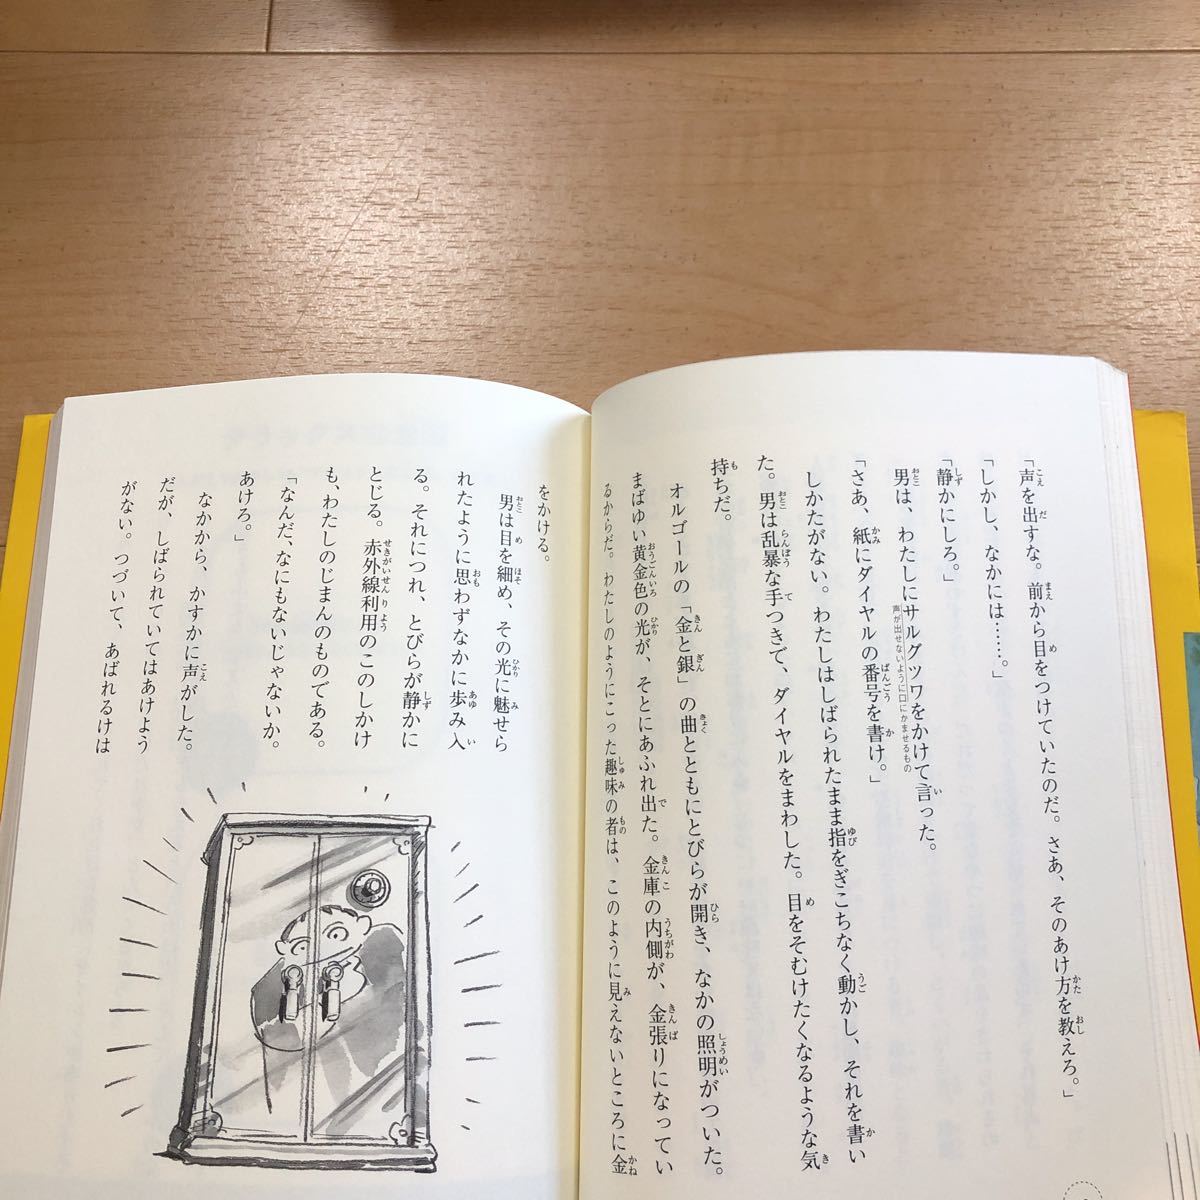 「声を出すな。前から目をつけていたのだ。さあ、そのあけ方を教えろ。」
「しかし、なかには……。」
「静かにしろ。」
男は、わたしにサルグツワをかけて言った。
声が出せないように口にかませるもの
「さあ、紙にダイヤルの番号を書け。」
しかたがない。わたしはしばられたまま指をぎこちなく動かし、それを書い
た。男は乱暴な手つきで、ダイヤルをまわした。目をそむけたくなるような気
持ちだ。
オルゴールの「金と銀」の曲とともにとびらが開き、なかの照明がついた。
まばゆい黄金色の光が、そとにあふれ出た。金庫の内側が、金張りになってい
るからだ。わたしのようにこった趣味の者は、このように見えないところに金
をかける。
男は目を細め、その光に魅せら
れたように思わずなかに歩み入
る。それにつれ、とびらが静かに
とじる。赤外線利用のこのしかけ
も、わたしのじまんのものである。
「なんだ、なにもないじゃないか。
あけろ。」
なかから、かすかに声がした。
だが、しばられていてはあけよう
がない。つづいて、あばれるけは